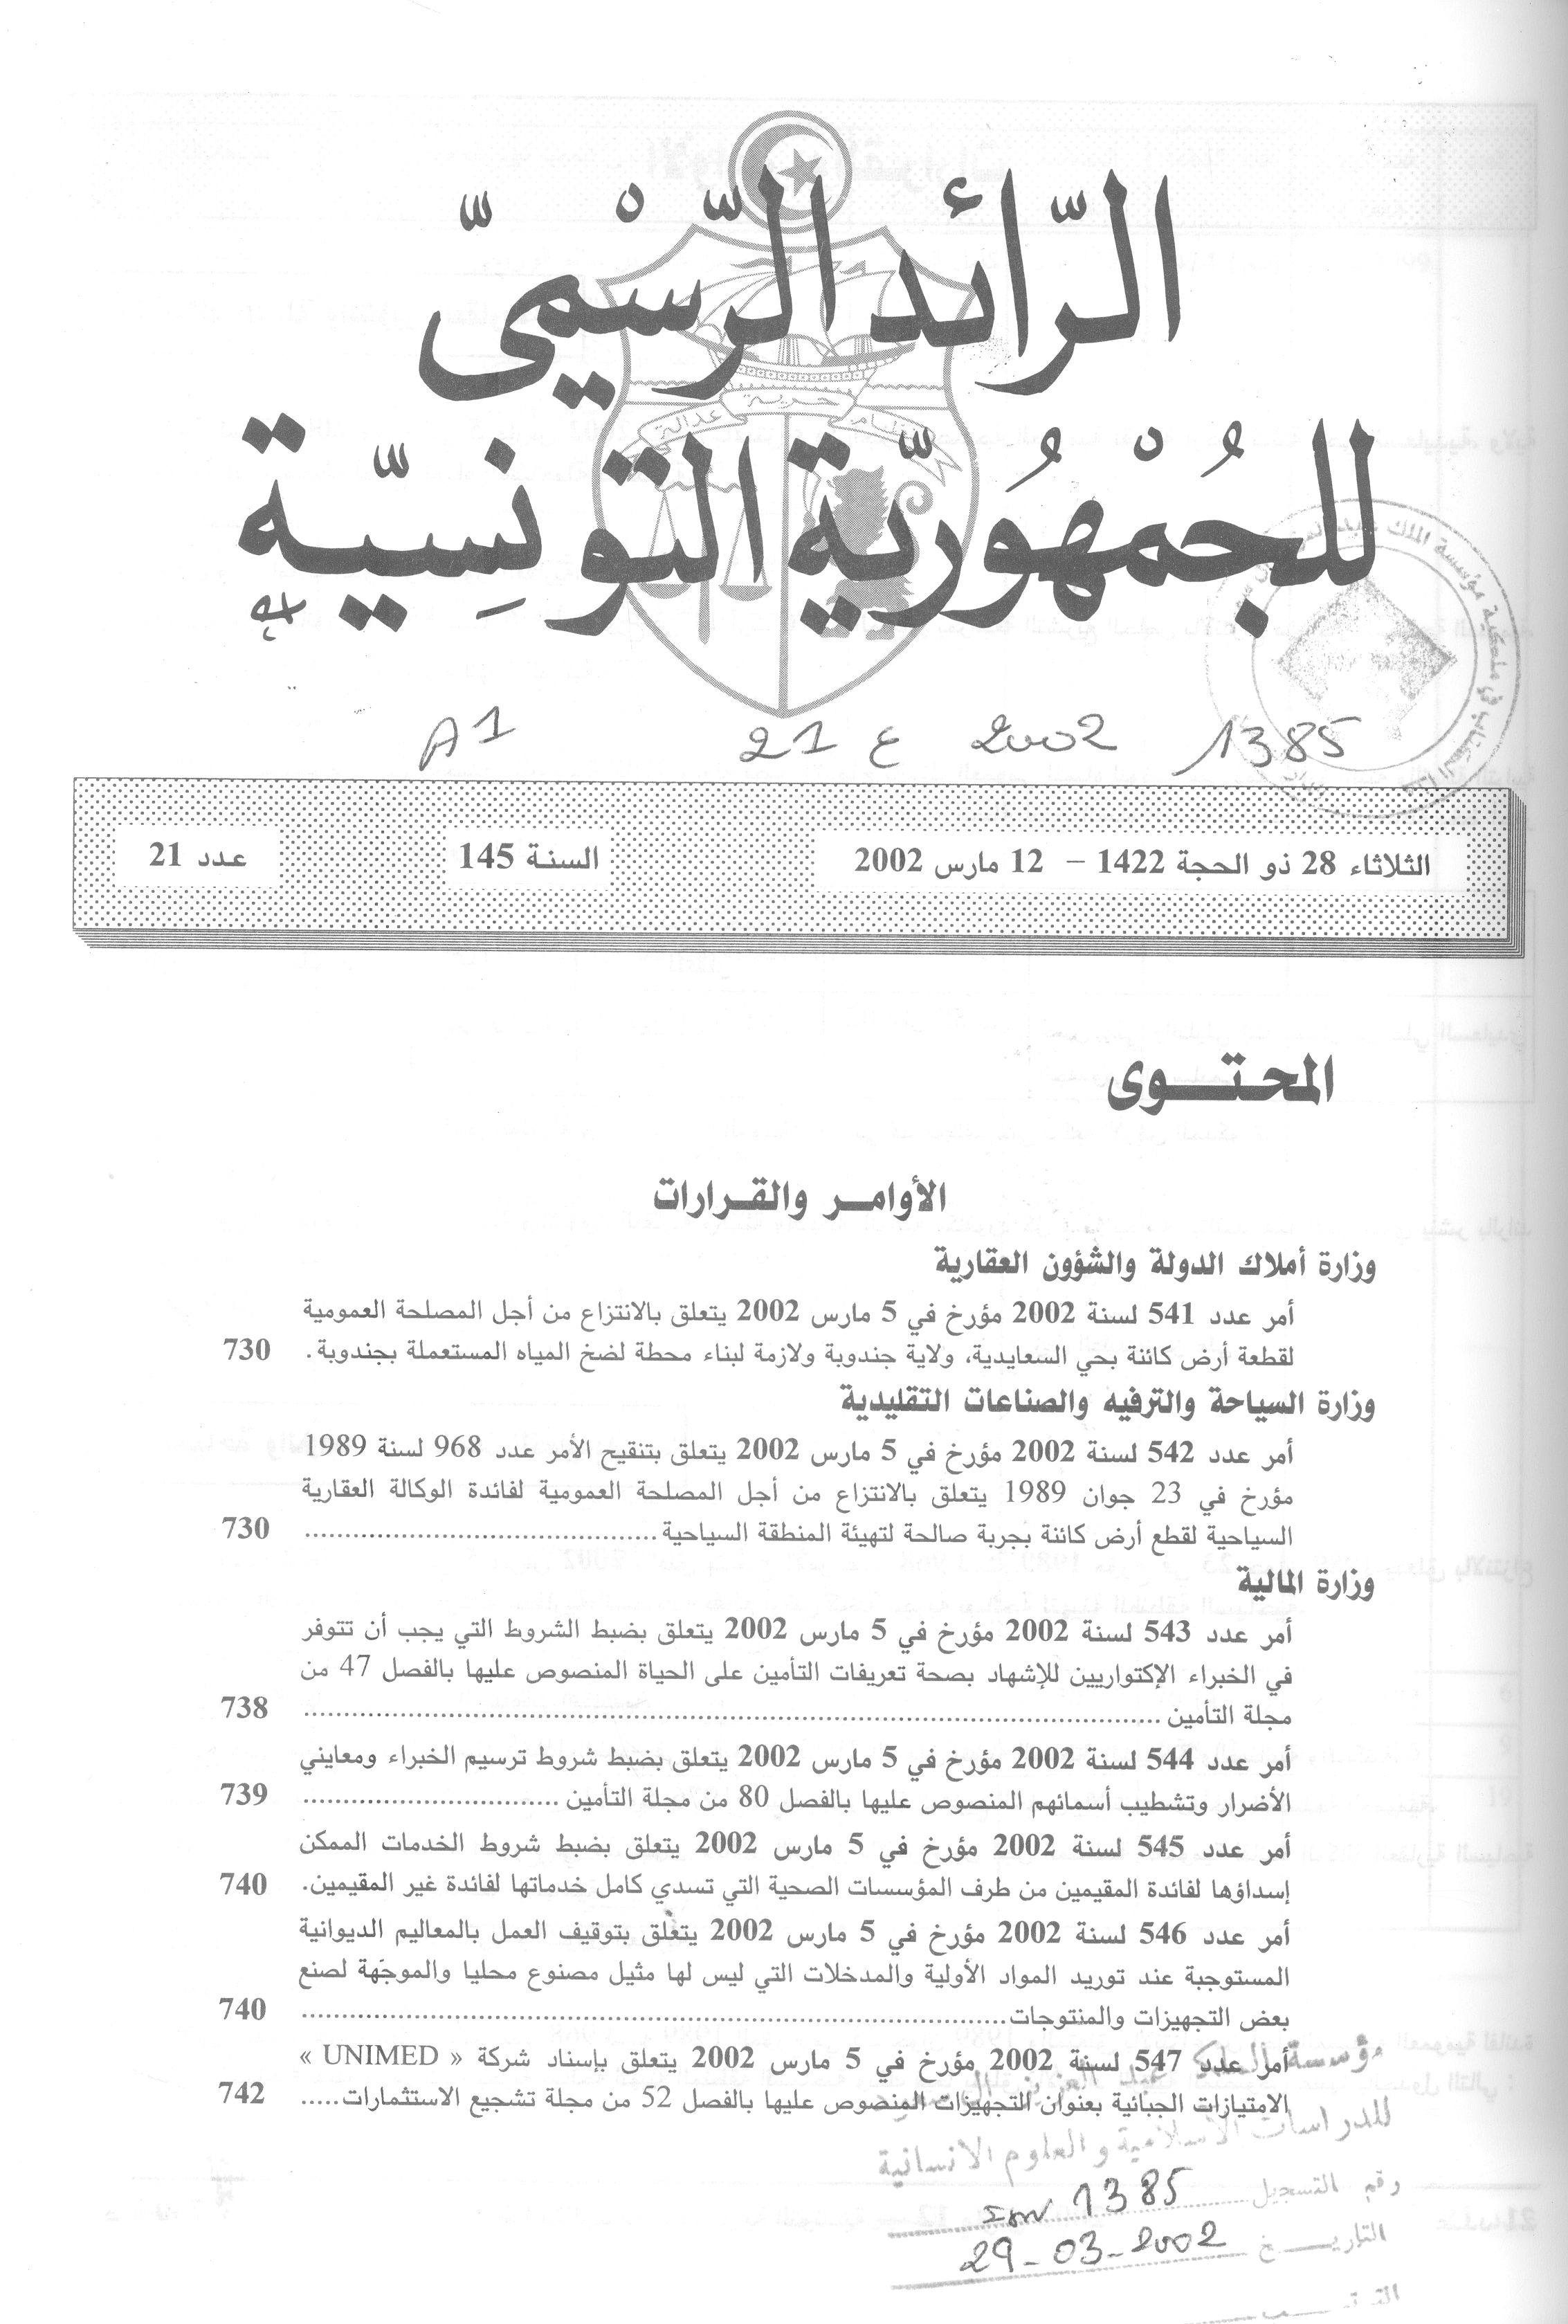 الرّائد الرّسْميّ
للجُمْهُوريّة التّونِسيّة
نظام حرية عدالة
A1 21 ع 2002 1385
الثلاثاء 28 ذو الحجة 1422 – 12 مارس 2002 السنة 145 عدد 21
المحتوى
الأوامر والقرارات
وزارة أملاك الدولة والشؤون العقارية
أمر عدد 541 لسنة 2002 مؤرخ في 5 مارس 2002 يتعلق بالانتزاع من أجل المصلحة العمومية
لقطعة أرض كائنة بحي السعايدية، ولاية جندوبة ولازمة لبناء محطة لضخ المياه المستعملة بجندوبة. 730
وزارة السياحة والترفيه والصناعات التقليدية
أمر عدد 542 لسنة 2002 مؤرخ في 5 مارس 2002 يتعلق بتنقيح الأمر عدد 968 لسنة 1989
مؤرخ في 23 جوان 1989 يتعلق بالانتزاع من أجل المصلحة العمومية لفائدة الوكالة العقارية
السياحية لقطع أرض كائنة بجربة صالحة لتهيئة المنطقة السياحية ............ 730
وزارة المالية
أمر عدد 543 لسنة 2002 مؤرخ في 5 مارس 2002 يتعلق بضبط الشروط التي يجب أن تتوفر
في الخبراء الإكتواريين للإشهاد بصحة تعريفات التأمين على الحياة المنصوص عليها بالفصل 47 من
مجلة التأمين ............ 738
أمر عدد 544 لسنة 2002 مؤرخ في 5 مارس 2002 يتعلق بضبط شروط ترسيم الخبراء ومعايني
الأضرار وتشطيب أسمائهم المنصوص عليها بالفصل 80 من مجلة التأمين ............ 739
أمر عدد 545 لسنة 2002 مؤرخ في 5 مارس 2002 يتعلق بضبط شروط الخدمات الممكن
إسداؤها لفائدة المقيمين من طرف المؤسسات الصحية التي تسدي كامل خدماتها لفائدة غير المقيمين. 740
أمر عدد 546 لسنة 2002 مؤرخ في 5 مارس 2002 يتعلق بتوقيف العمل بالمعاليم الديوانية
المستوجبة عند توريد المواد الأولية والمدخلات التي ليس لها مثيل مصنوع محليا والموجّهة لصنع
بعض التجهيزات والمنتوجات ............ 740
أمر عدد 547 لسنة 2002 مؤرخ في 5 مارس 2002 يتعلق بإسناد شركة « UNIMED »
الامتيازات الجبائية بعنوان التجهيزات المنصوص عليها بالفصل 52 من مجلة تشجيع الاستثمارات..... 742
مؤسسة الملك عبد العزيز
للدراسات الاسلامية و العلوم الانسانية
رقم التسجيل 1385
التاريخ 29-03-2002